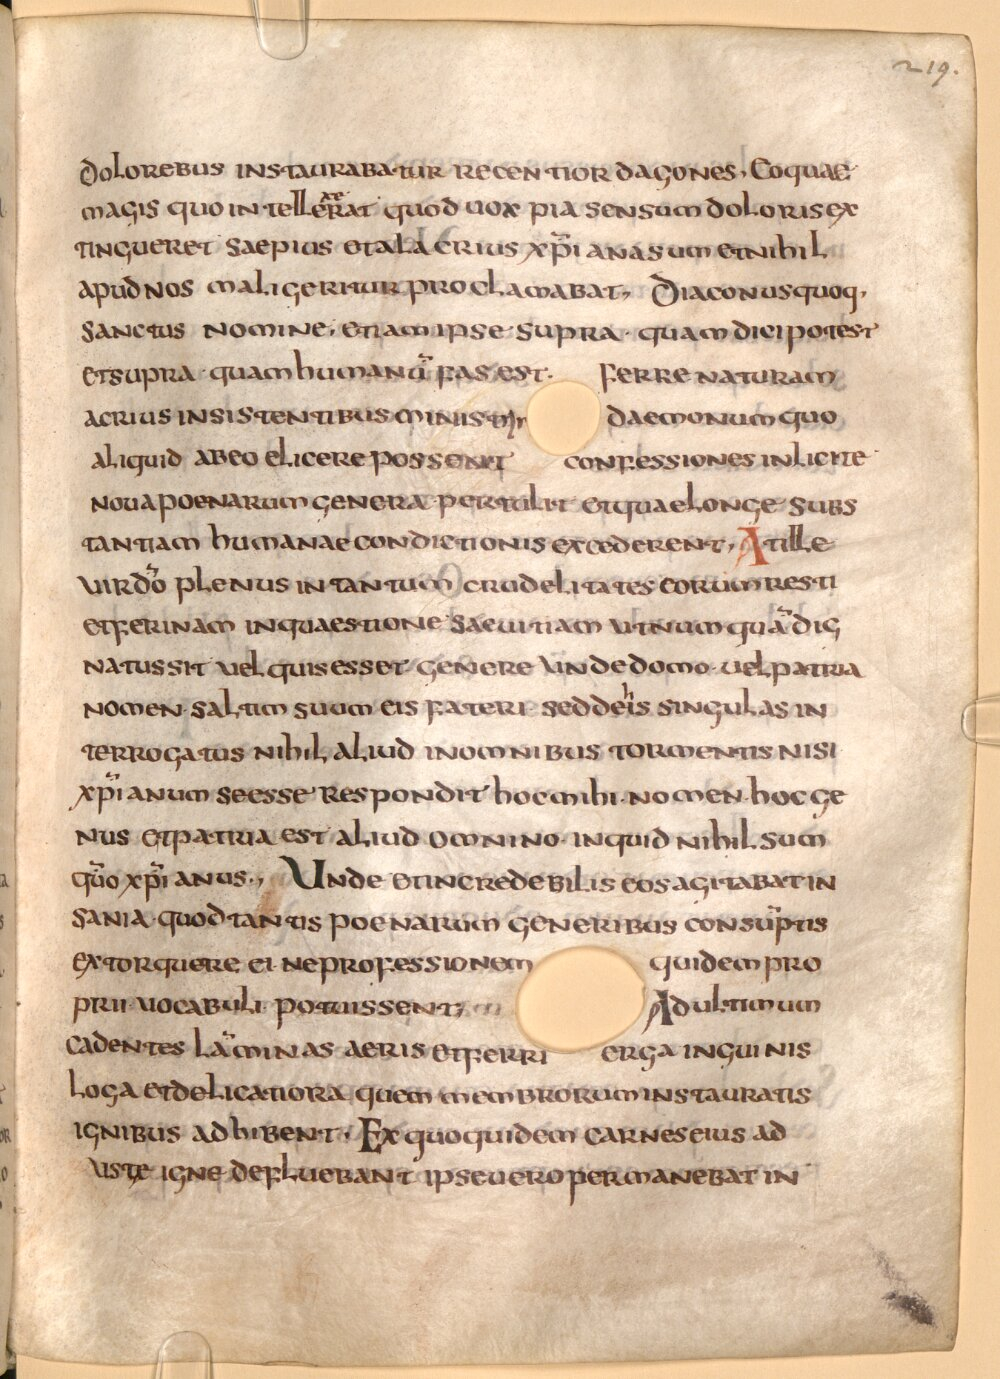 219.
dolorebus instaurabatur recentior dagones, Eoquae
magis quo intellexerat quod uox pia sensum doloris ex
tingueret saepius et alacrius xp̄ianasum et nihil
apud nos mali geritur proclamabat, Diaconus quoq,
sanctus nomine, etiam ipse supra quam dici potest
et supra quam humanū fas est. ferre naturam
acrius insistentibus ministris daemonum quo
aliquid ab eo elicere possent confessiones inlicite
noua poenarum genera pertulit et quae longe subs
tantiam humanae condictionis excederent, At ille
uir dō plenus in tantum crudelitates eorum resti
et ferinam in quaestione saeuitiam ut numquā dig
natus sit uel quis esset genere unde domo uel patria
nomen saltim suum eis fateri sed de his singulas in
terrogatus nihil aliud in omnibus tormentis nisi
xp̄ianum se esse respondit hoc mihi nomen hoc ge
nus et patria est aliud omnino inquid nihil sum
quō xp̄ianus., Unde et incredebilis eos agitabat in
sania quod tantis poenarum generibus consūptis
extorquere ei ne professionem quidem pro
prii uocabuli potuissent, Ad ultimum
cadentes lāminas aeris et ferri erga inguinis
loga et delicatiora quem membrorum instauratis
ignibus adhibent, Ex quo quidem carnes eius ad
uste igne defluebant ipse uero permanebat in